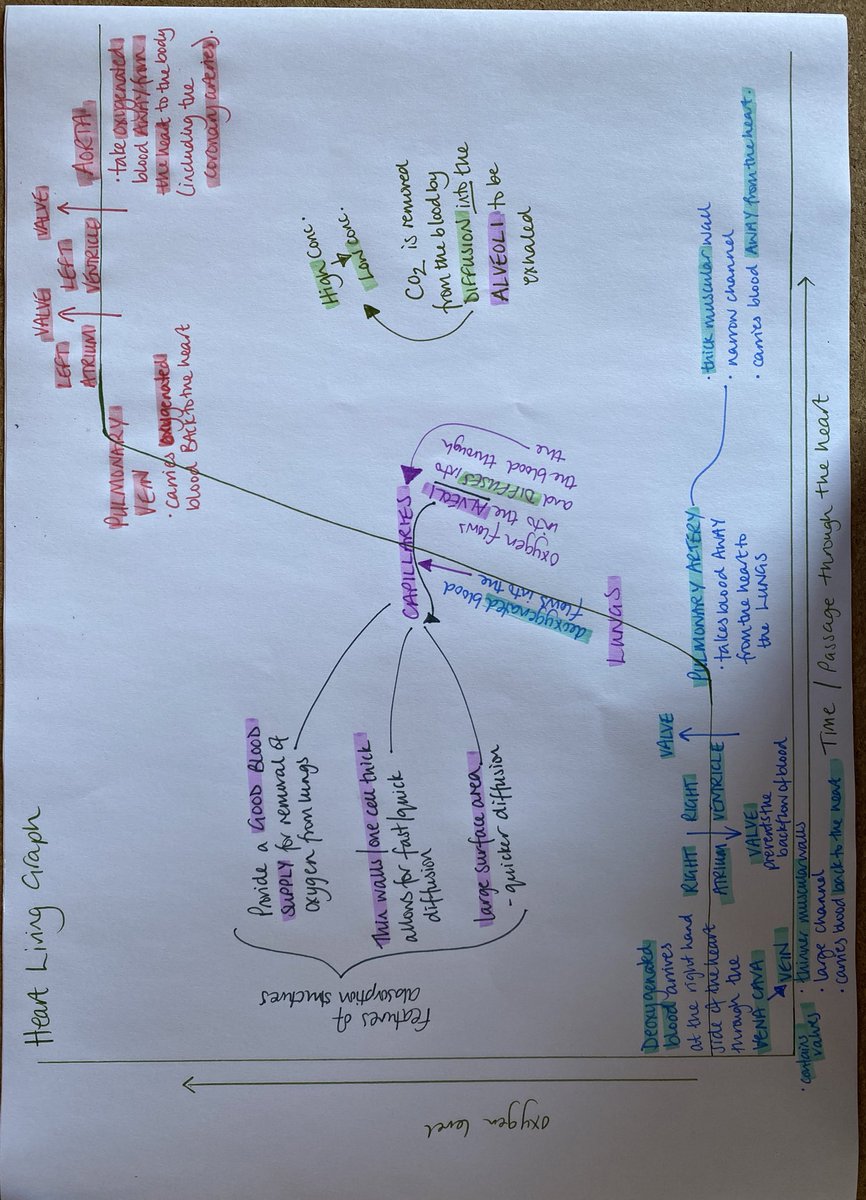 Heart Living Graph
oxygen level
Time / Passage through the heart
Deoxygenated
blood arrives
at the right hand
side of the heart
through the
VENA CAVA
VEIN
· contains
valves
· thinner muscular walls
· large channel
· carries blood back to the heart
RIGHT
ATRIUM
VALVE
prevents the
backflow of blood
RIGHT
VENTRICLE
VALVE
PULMONARY ARTERY
· takes blood AWAY
from the heart to
the LUNGS
· thick muscular wall
· narrow channel
· carries blood AWAY from the heart.
LUNGS
deoxygenated blood
flows into the
CAPILLARIES
oxygen flows
into the ALVEOLI
and DIFFUSES into
the blood through
the
features of
absorption structures
Provide a GOOD BLOOD
SUPPLY for removal of
oxygen from lungs
Thin walls/one cell thick
allows for fast/quick
diffusion
large surface area
- quicker diffusion
High conc.
Low conc.
CO2 is removed
from the blood by
DIFFUSION into the
ALVEOLI to be
exhaled
PULMONARY
VEIN
· carries oxygenated
blood BACK to the heart
LEFT
ATRIUM
VALVE
LEFT
VENTRICLE
VALVE
AORTA
· take oxygenated
blood AWAY from
the heart to the body
(including the
coronary arteries).